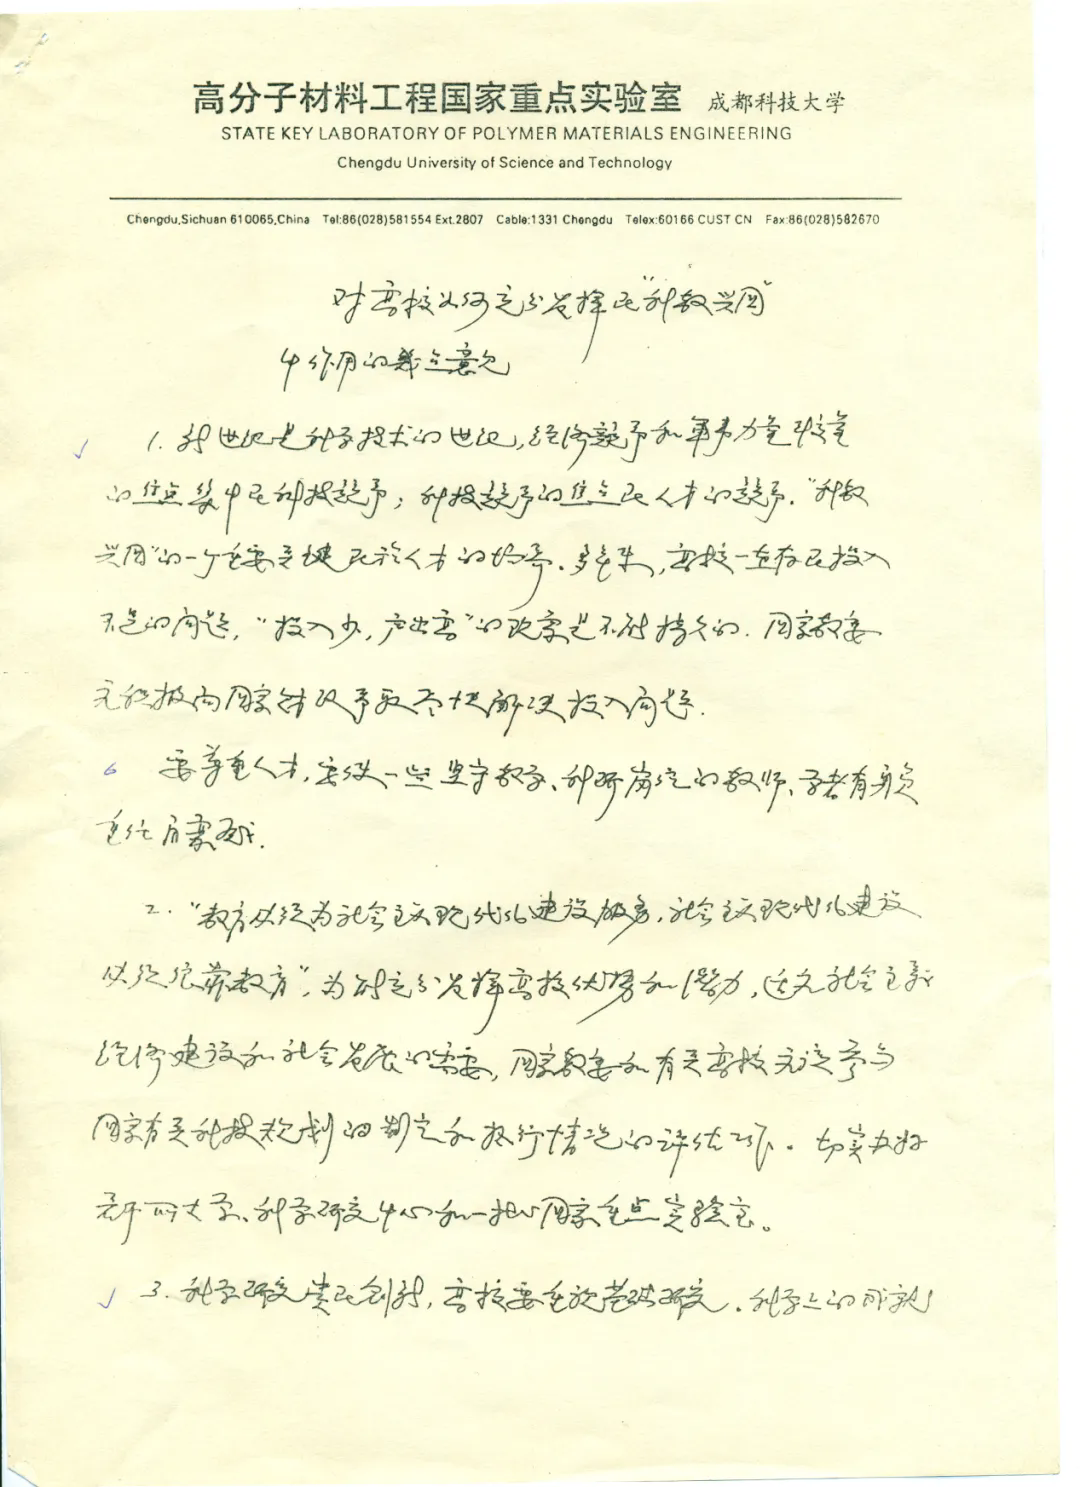 高分子材料工程国家重点实验室 成都科技大学
STATE KEY LABORATORY OF POLYMER MATERIALS ENGINEERING
Chengdu University of Science and Technology
Chengdu,Sichuan 610065,China Tel:86(028)581554 Ext.2807 Cable:1331 Chengdu Telex:60166 CUST CN Fax:86(028)582670
对高校如何充分发挥在“科教兴国”
中作用的几点意见
1. 新世纪是科学技术的世纪，经济竞争和军事力量较量
的焦点集中在科技竞争；科技竞争的焦点在人才的竞争。“科教
兴国”的一个重要关键在于人才的培养。多年来，高校一直存在投入
不足的问题，“投入少，产出高”的现象是不能持久的。国家教委
应积极向国家财政争取尽快解决投入问题。
要尊重人才，要使一些坚守教学、科研岗位的教师、学者有
重任
2. “教育必须为社会主义现代化建设服务，社会主义现代化建设
必须依靠教育”，为能充分发挥高校优势和潜力，适应社会主义
经济建设和社会发展的需要，国家教委和有关高校应该参与
国家有关科技规划的制定和执行情况的评估工作。切实办好
若干所大学、科学研究中心和一批国家重点实验室。
3. 科学研究贵在创新，高校要重视基础研究。科学上的成就